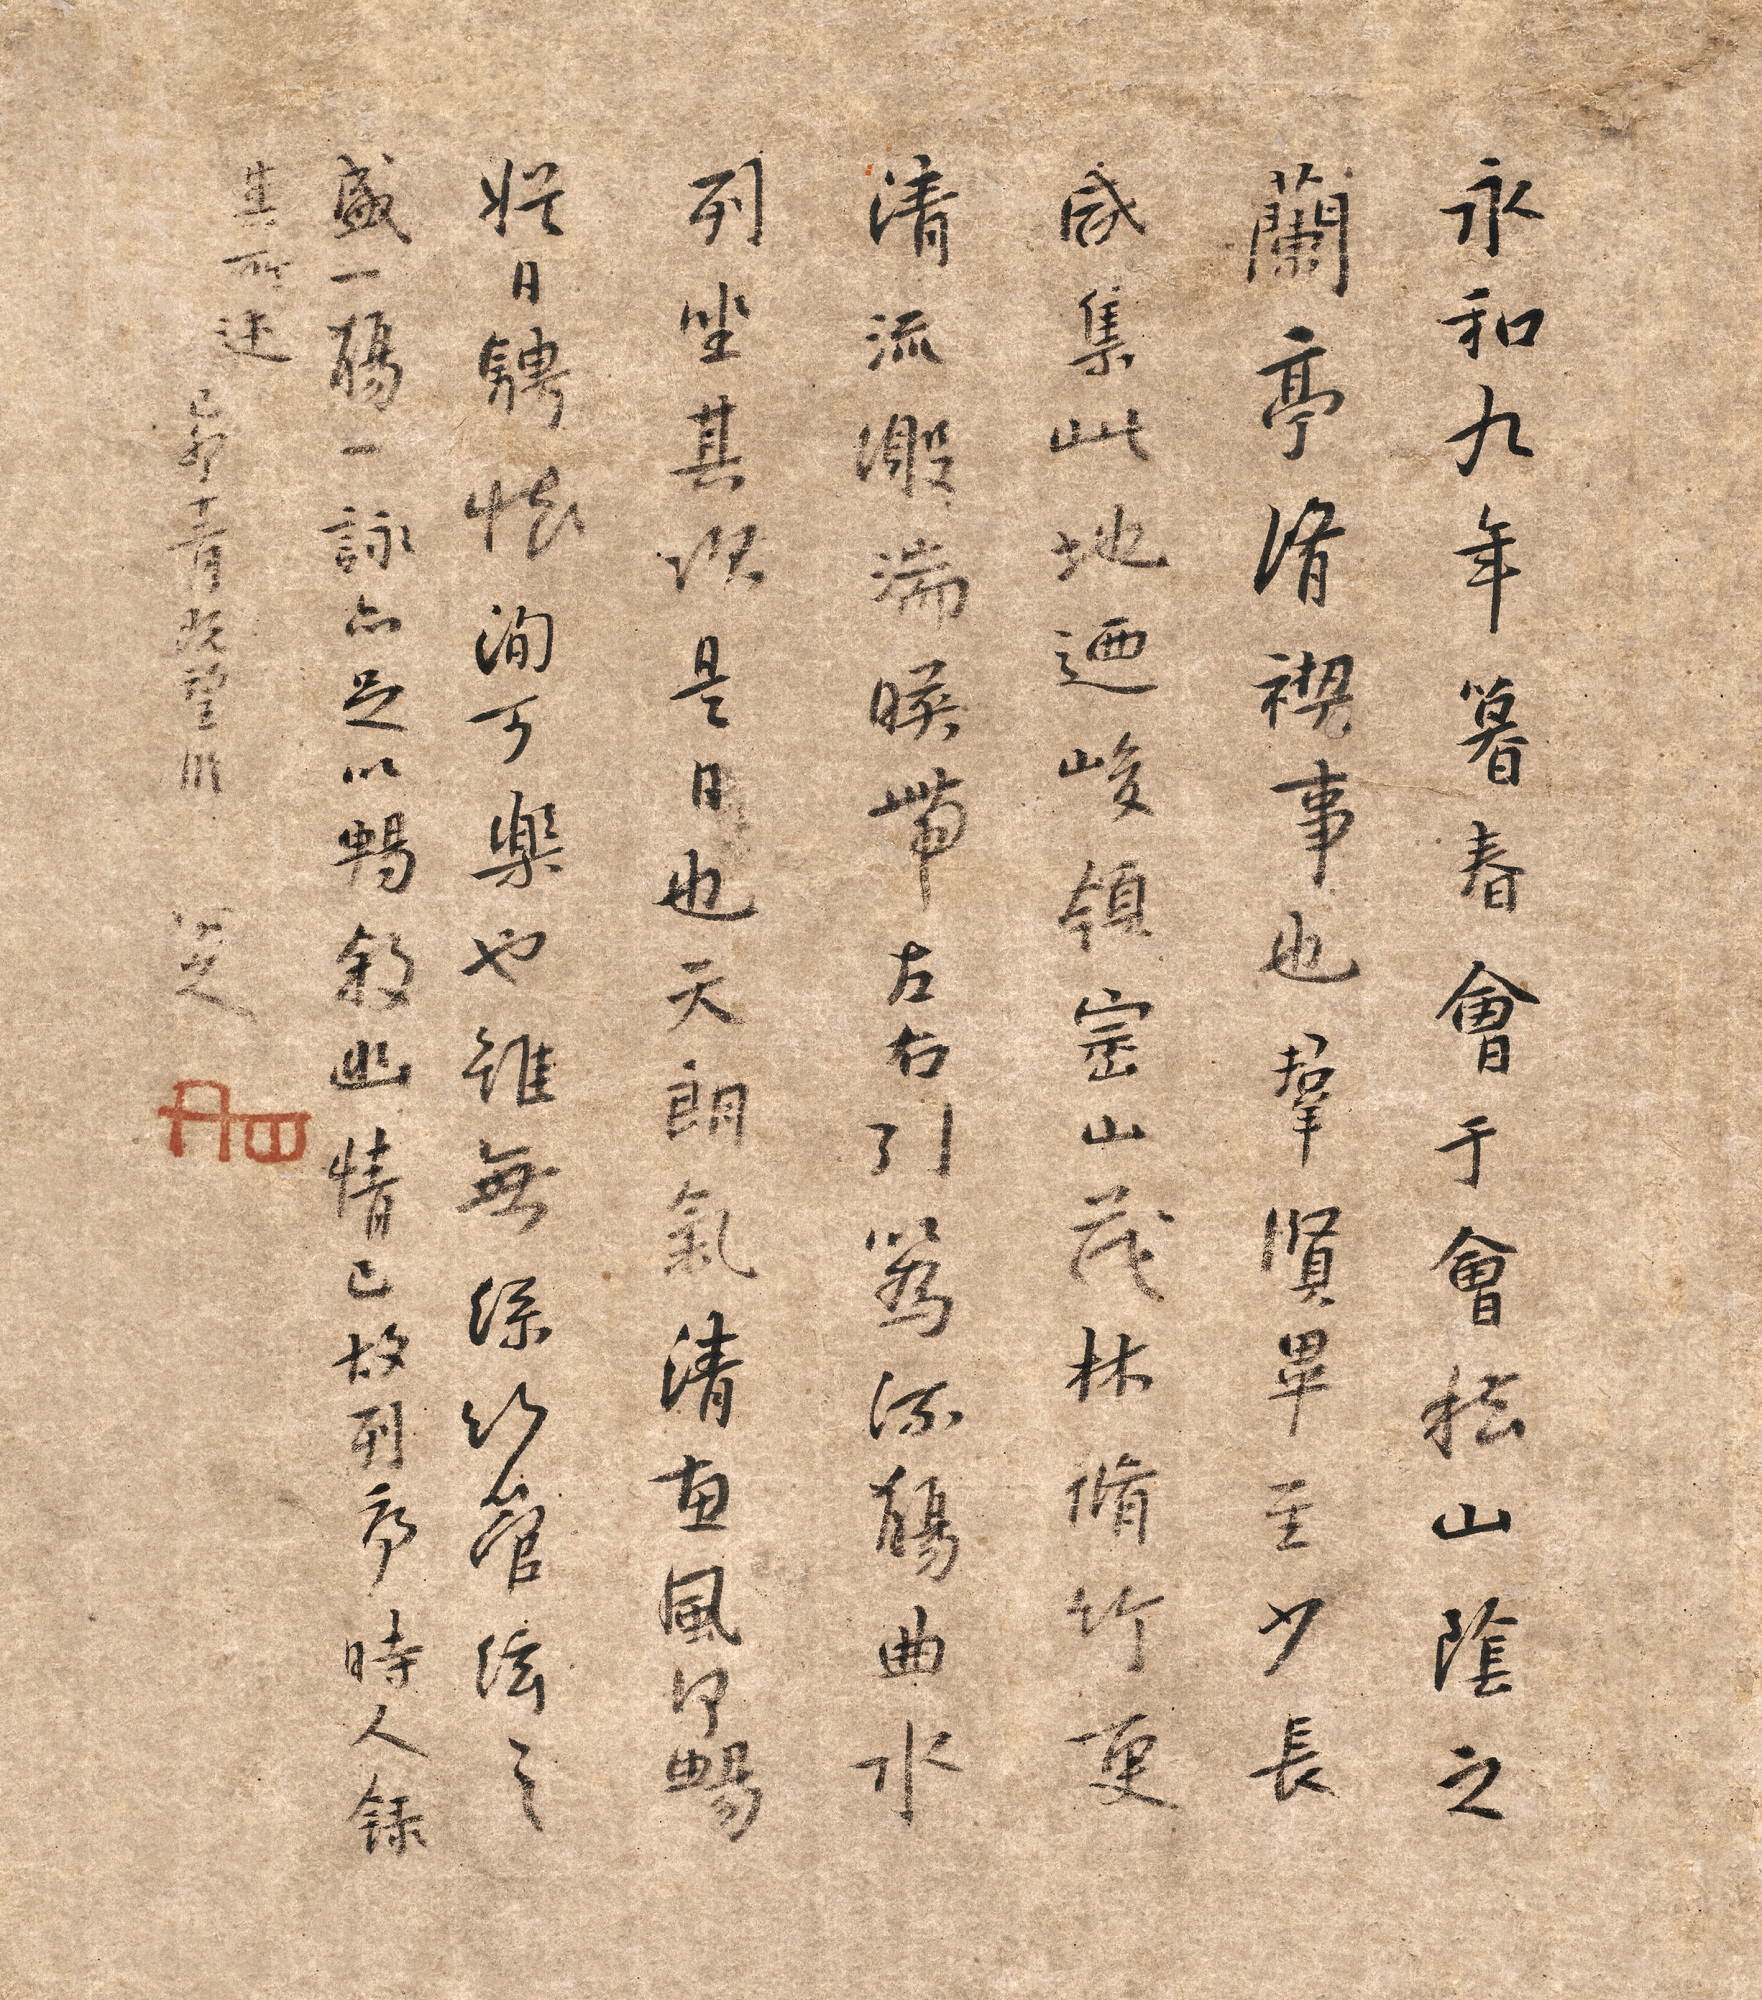 永和九年暮春會于會稽山陰之
蘭亭脩禊事也羣賢畢至少長
咸集此地迺峻領崇山茂林脩竹更
清流激湍暎帶左右引以為流觴曲水
列坐其次是日也天朗氣清惠風和暢
娛日騁懷洵可樂也雖無絲竹管弦之
盛一觴一詠亦足以暢敘幽情已故列序時人錄
其所述
己卯既望 八大